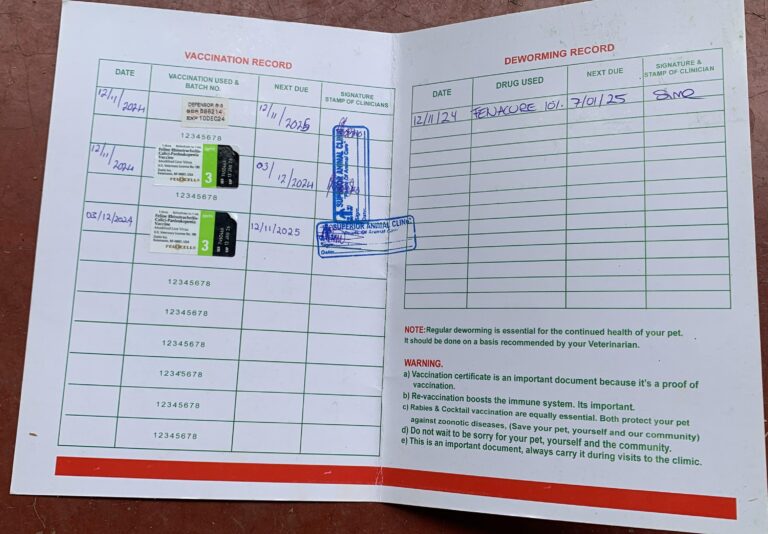 VACCINATION RECORD
DATE
VACCINATION USED &
BATCH NO.
NEXT DUE
SIGNATURE
STAMP OF CLINICIANS
12/11/2024
DEFENSOR
EXP 10DEC24
12/11/2025
12345678
12/11/2024
Feline Rhinotracheitis-
Calici-Panleukopenia
Vaccine
3
03/12/2024
12345678
03/12/2024
Feline Rhinotracheitis-
Calici-Panleukopenia
Vaccine
3
12/11/2025
SUPERIOR ANIMAL CLINIC
Date:
12345678
12345678
12345678
12345678
12345678
12345678
DEWORMING RECORD
DATE
DRUG USED
NEXT DUE
SIGNATURE &
STAMP OF CLINICIAN
12/11/24
FENACURE 10%
7/01/25
NOTE:Regular deworming is essential for the continued health of your pet.
It should be done on a basis recommended by your Veterinarian.
WARNING.
a) Vaccination certificate is an important document because it's a proof of
vaccination.
b) Re-vaccination boosts the immune system. Its important.
c) Rabies & Cocktail vaccination are equally essential. Both protect your pet
against zoonotic diseases, (Save your pet, yourself and our community)
d) Do not wait to be sorry for your pet, yourself and the community.
e) This is an important document, always carry it during visits to the climic.